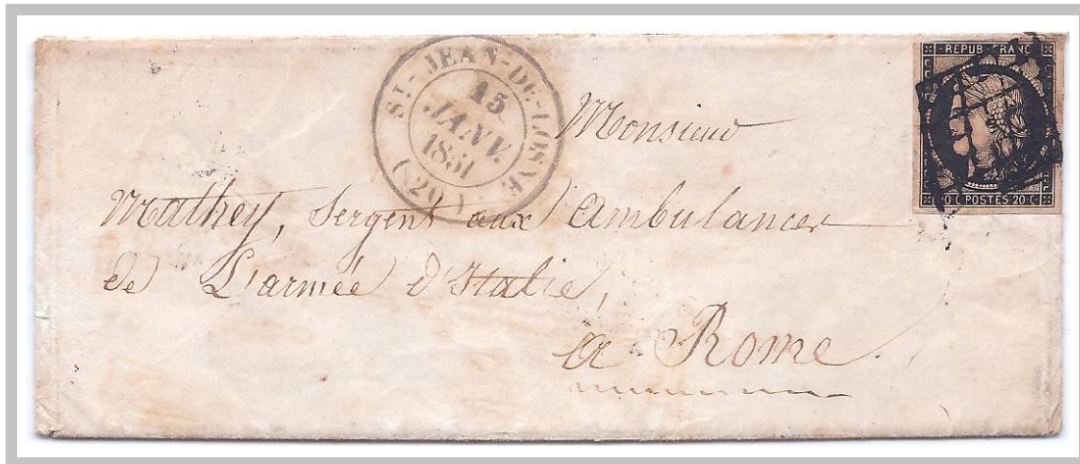 ST-JEAN-DE-LOSNE
15
JANV.
1851
(20)
REPUB FRANC
20 C POSTES 20 C
Monsieur
Mathey, Sergent aux Ambulances
de L'armée d'Italie,
a Rome.